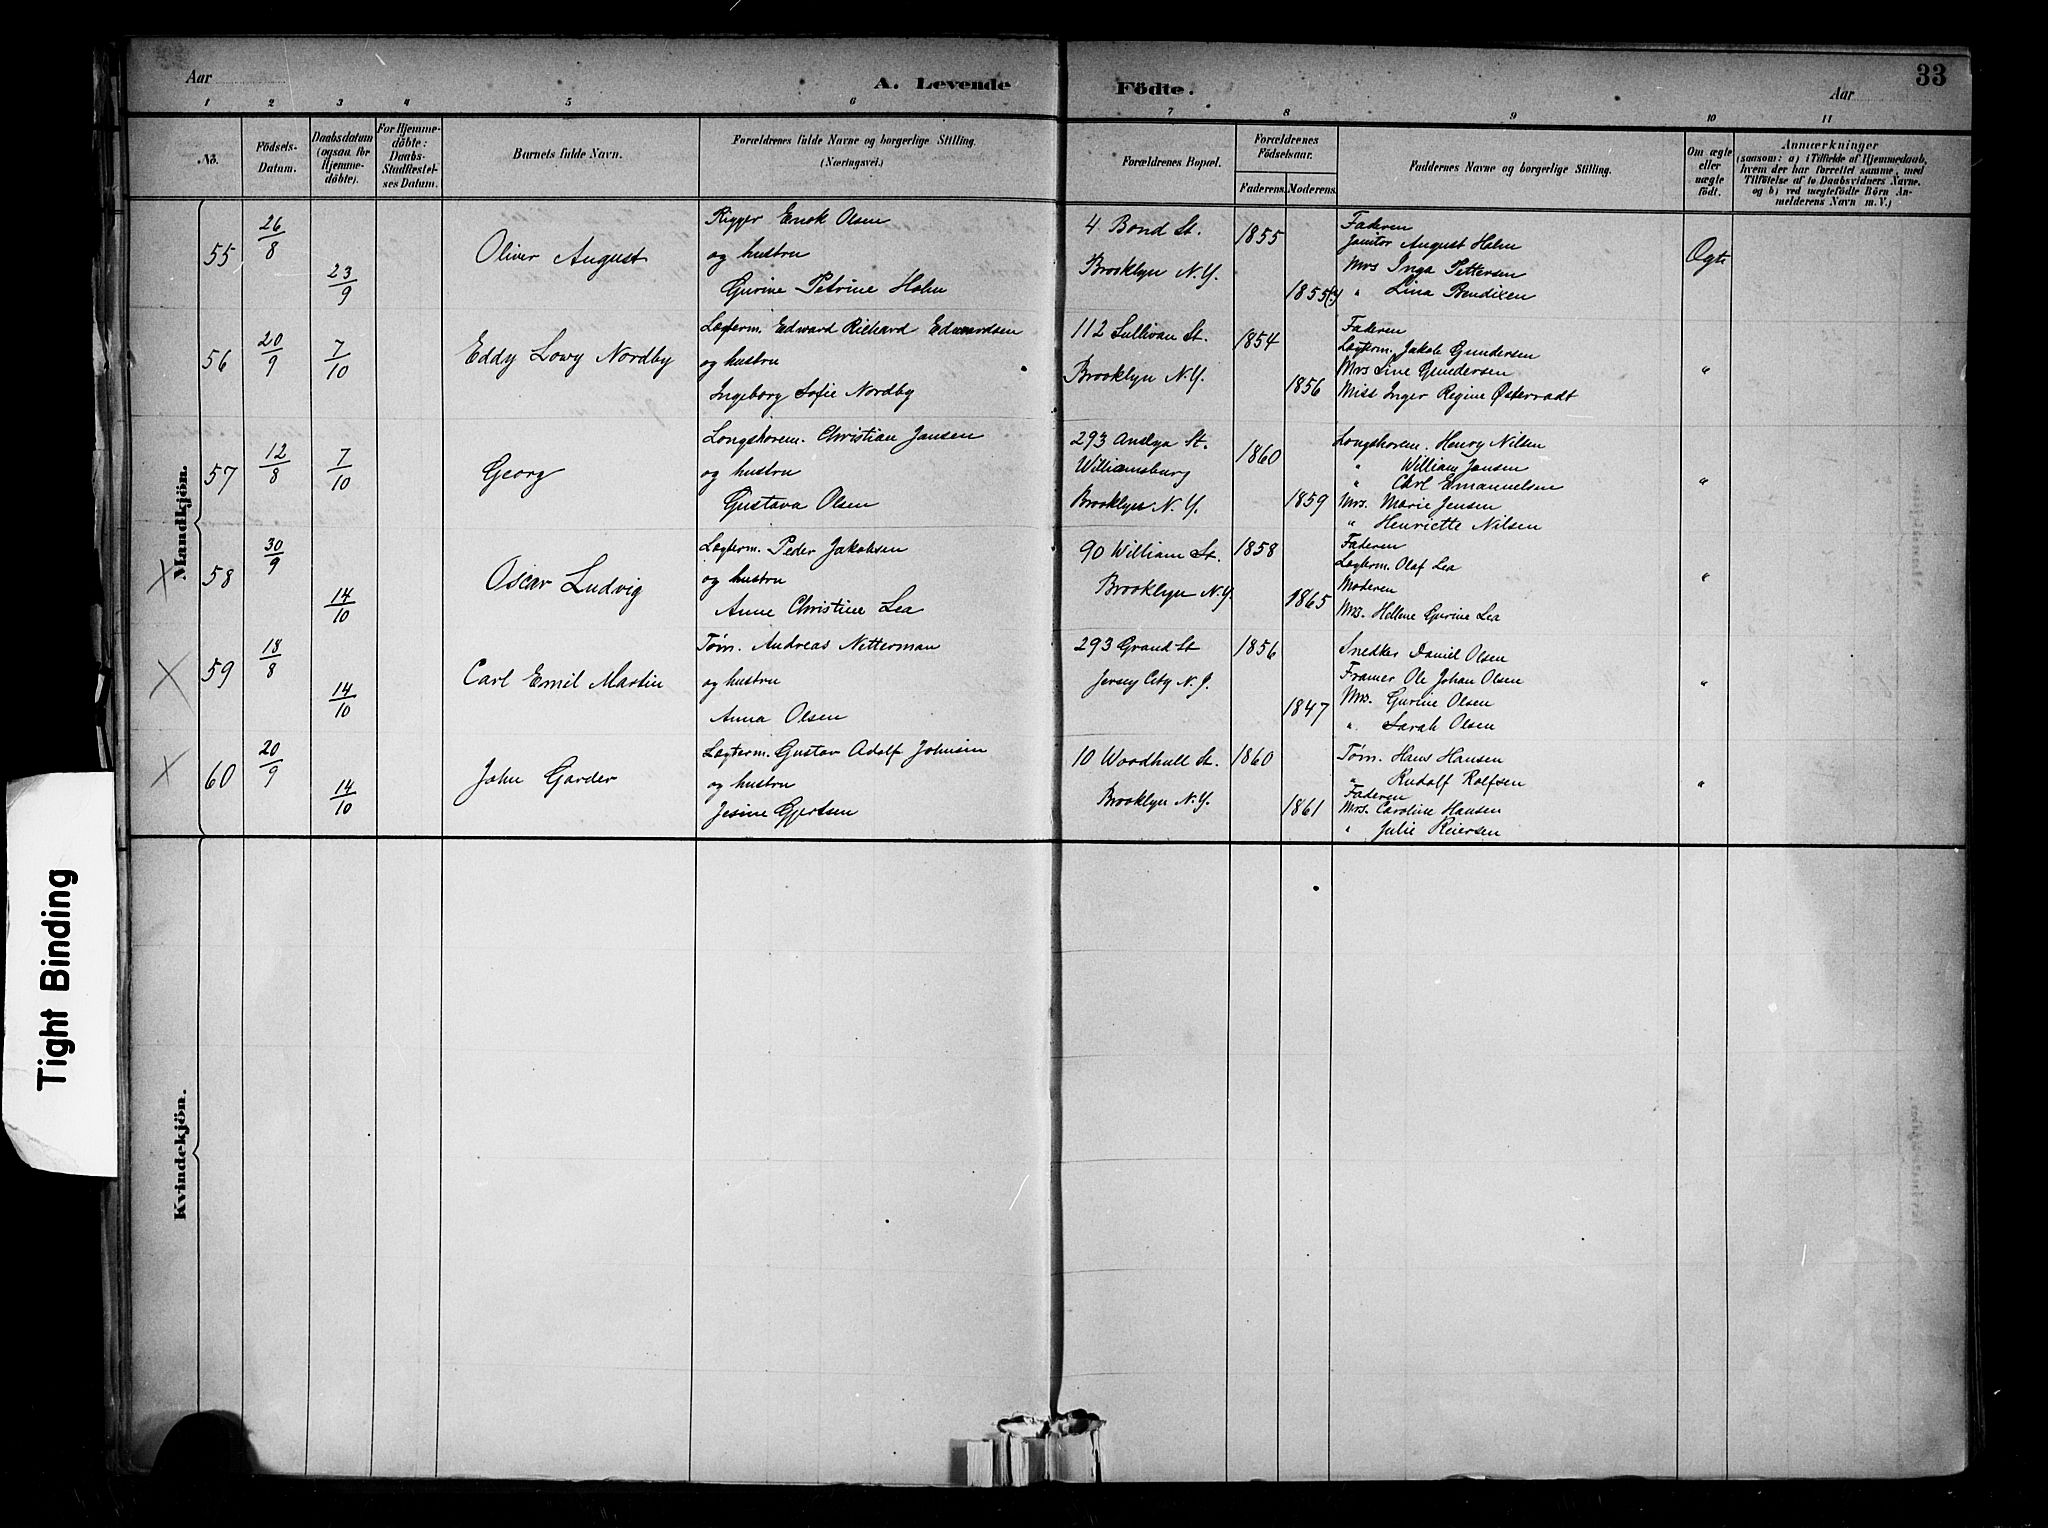 Aar
A. Levende Födte.
Aar
33
1 2 3 4 5 6 7 8 9 10 11
No.
Födsels-Datum.
Daabsdatum (ogsaa for Hjemme-döbte).
For Hjemme-döbte: Daabs-Stadfæstel-ses Datum.
Barnets fulde Navn.
Forældrenes fulde Navne og borgerlige Stilling.
(Næringsvei.)
Forældrenes Bopæl.
Forældrenes Födselsaar.
Faderens. Moderens.
Faddernes Navne og borgerlige Stilling.
Om ægte eller uægte födt.
Anmærkninger
(saasom: a) i Tilfælde af Hjemmedaab,
hvem der har forrettet samme, med
Tilföielse af to Daabsvidners Navne.
og b) ved uægtefödte Börn An-
melderens Navn m. V.)
Mandkjön.
55 26/8 23/9 Oliver August
Rigger Enok Olsen
og hustru
Gurine Petrine Holm
4 Bond St.
Brooklyn N.Y.
1855
1855(?)
Faderen
Janitor August Holm
Mrs Inga Pettersen
" Lina Bendixen
Ægte
56 20/9 7/10 Eddy Lowy Nordby
Lægterm. Edward Richard Edwardsen
og hustru
Ingeborg Sofie Nordby
112 Sullivan St.
Brooklyn N.Y.
1854
1856
Faderen
Lægterm. Jakob Gundersen
Mrs Line Gundersen
Miss Inger Regine Østeraadt
"
57 12/8 7/10 Georg
Longshorem. Christian Jansen
og hustru
Gustava Olsen
293 Anslya St.
Williamsburg
Brooklyn N.Y.
1860
1859
Longshorem. Henry Nilsen
" William Jansen
" Carl Emanuelsen
Mrs. Marie Jensen
" Henriette Nilsen
"
X 58 30/9 14/10 Oscar Ludvig
Lægterm. Peder Jakobsen
og hustru
Anne Christine Lea
90 William St.
Brooklyn N.Y.
1858
1865
Faderen
Lægterm. Olaf Lea
Moderen
Mrs. Hellene Gurine Lea
"
X 59 18/8 14/10 Carl Emil Martin
Tøm. Andreas Netterman
og hustru
Anna Olsen
293 Grand St
Jersey City N.J.
1856
1847
Snedker Daniel Olsen
Framer Ole Johan Olsen
Mrs. Gurine Olsen
" Sarah Olsen
"
X 60 20/9 14/10 John Garder
Lægterm. Gustav Adolf Johnsen
og hustru
Jesine Gjertsen
10 Woodhull St.
Brooklyn N.Y.
1860
1861
Tøm. Hans Hansen
" Rudolf Rolfsen
Faderen
Mrs. Caroline Hansen
" Julie Reiersen
"
Kvindekjön.
Tight Binding